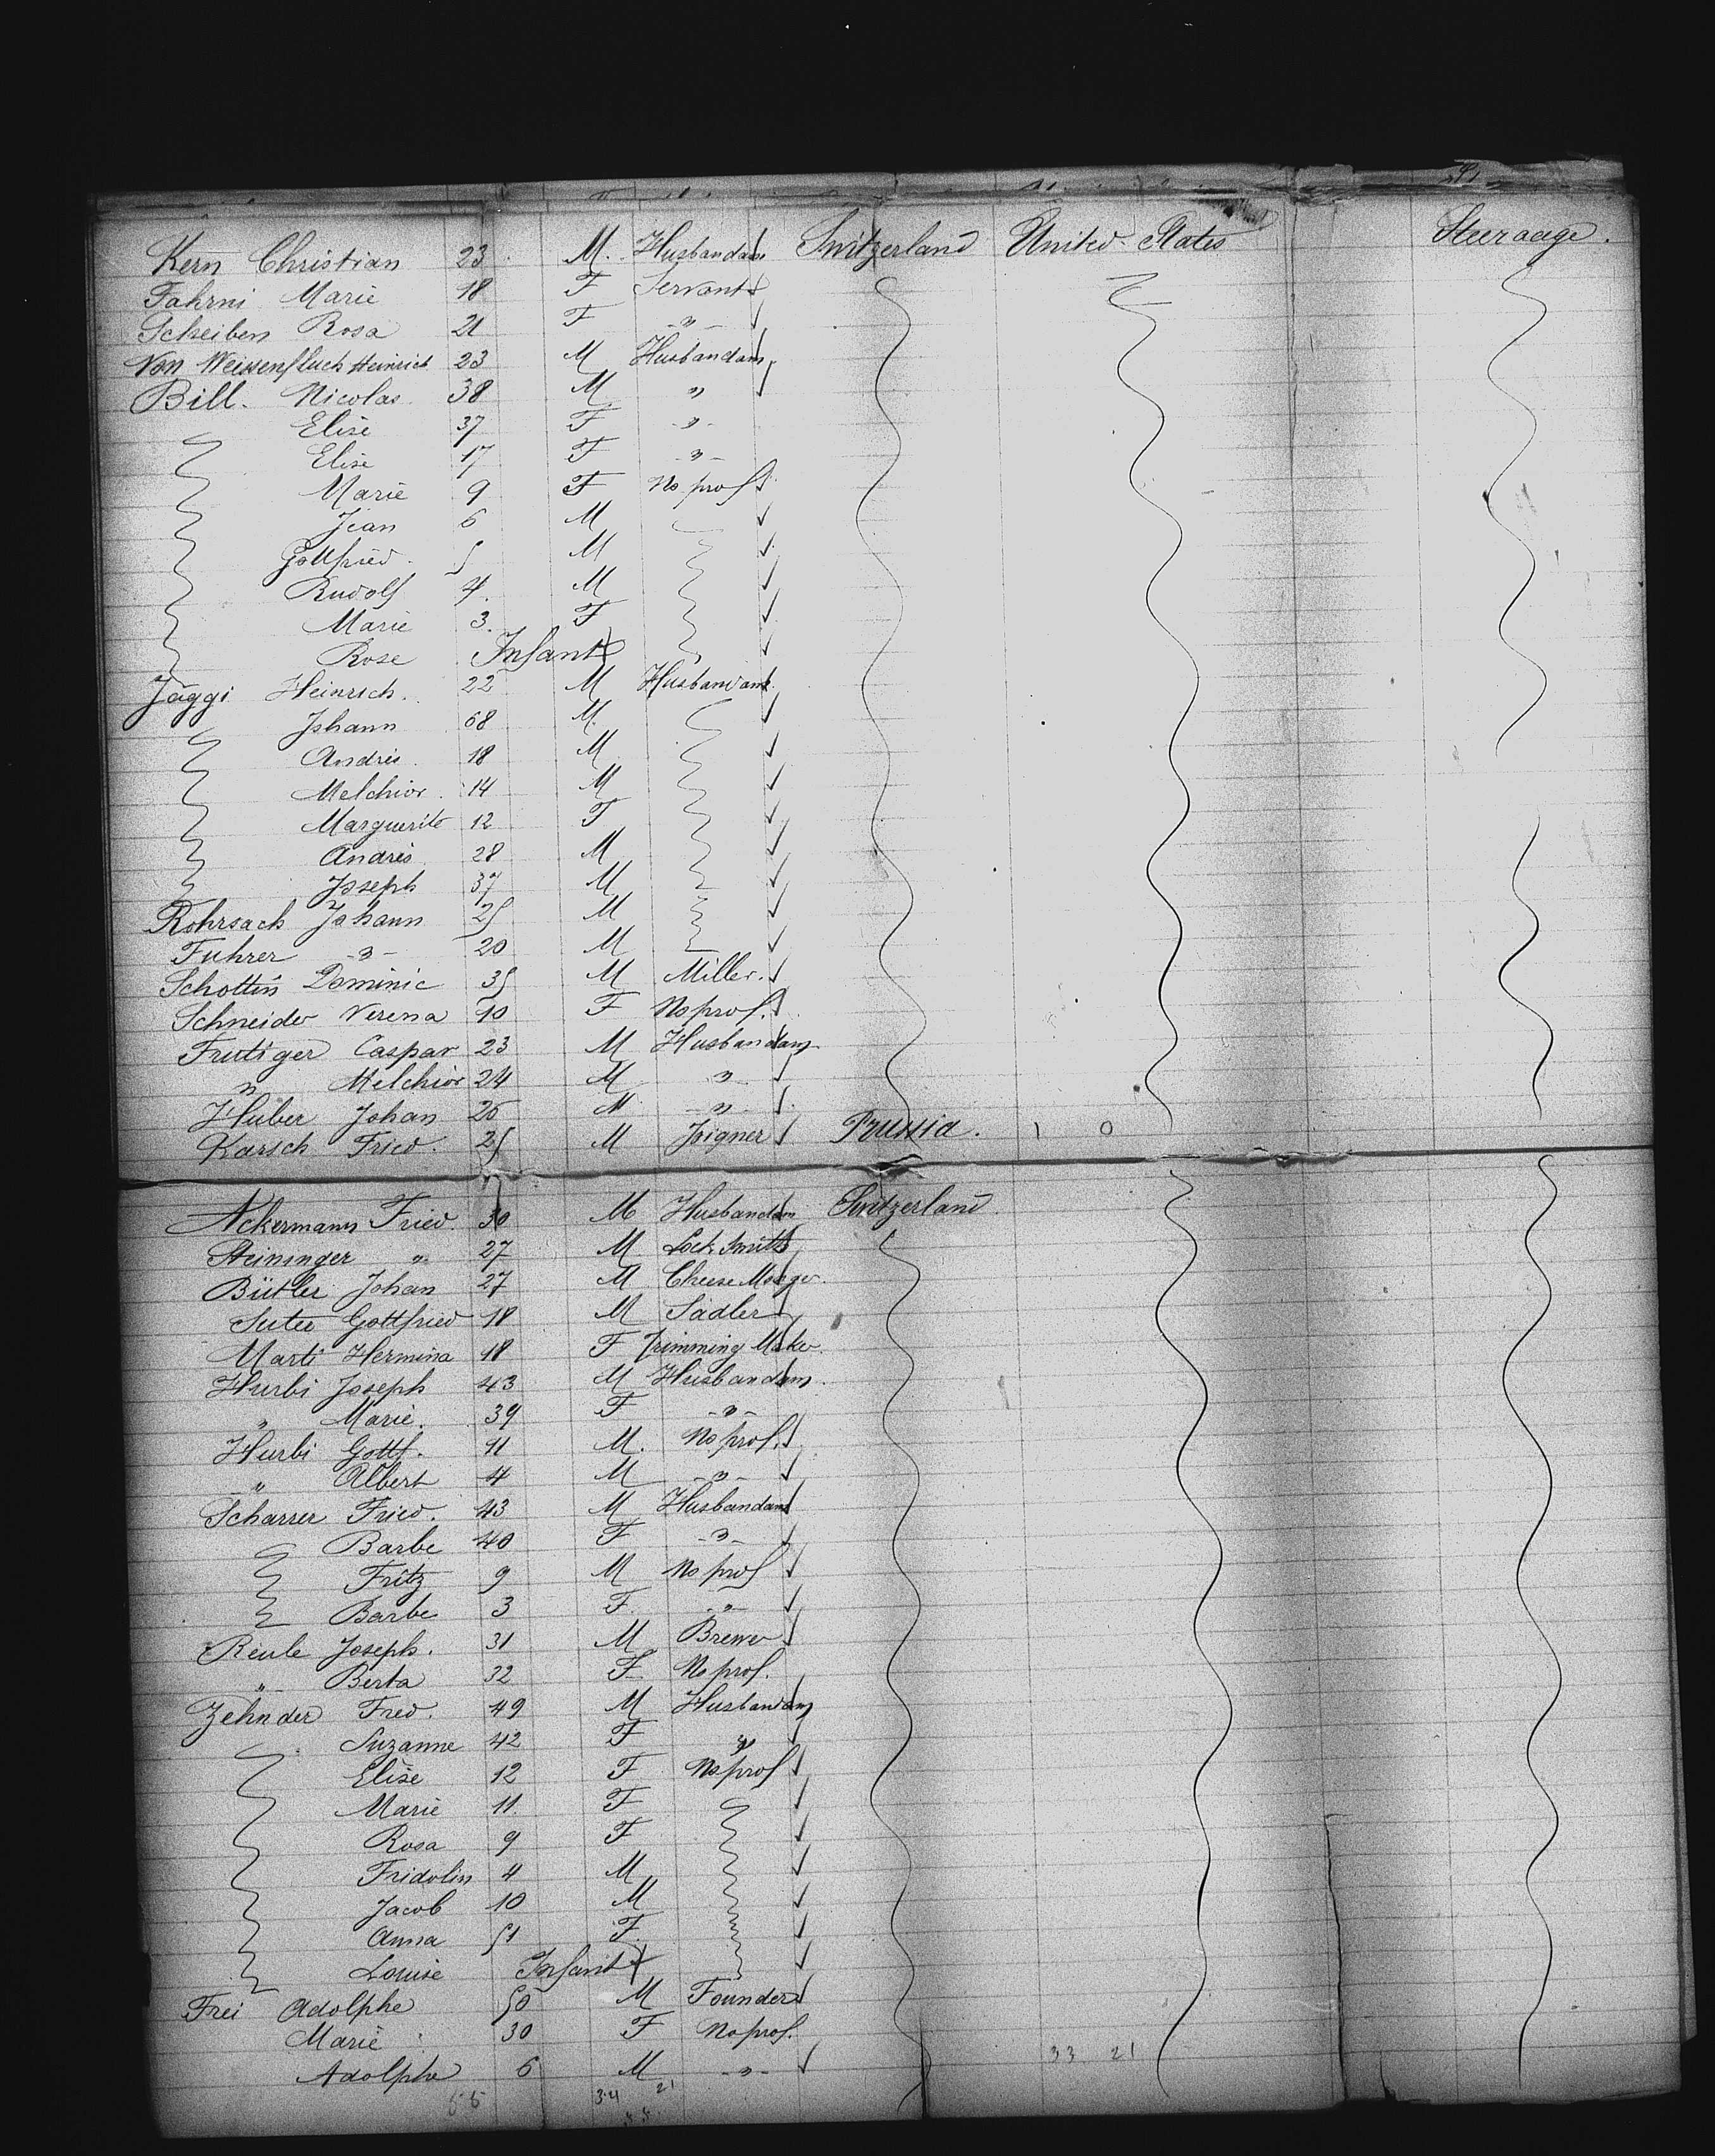 Kern Christian 23 M. Husbandam Switzerland United States Steeraage.
Fahrni Marie 18 F Servant
Scheiben Rosa 21 F -"-
Von Weissenfluch Heinrich 23 M Husbandam
Bill. Nicolas 38 M "
Elise 37 F -"-
Elise 17 F -"-
Marie 9 F No prof
Jean 6 M
Gottfried. 5 M
Rudolf 4. M
Marie 3. F
Rose Infant
Jäggi Heinrich. 22 M Husbandam
Johann 68 M
Andrés. 18 M
Melchior. 14 M
Marguerite 12 F
Andrès 28 M
Joseph 37 M
Rohrsach Johann 25 M
Fuhrer -"- 20 M
Schottin Dominic 35 M Miller.
Schneider Verena 10 F No prof.
Frutiger Caspar 23 M Husbandam
" Melchior 24 M "
Huber Johan 25 M -"-
Karsch Fried. 25 M Joigner Prussia. 1 0
Ackermann Fried. 30 M Husbandam Switzerland.
Steininger " 27 M Lock Smith
Bütler Johan 27 M Cheese Monger.
Suter Gottfried 18 M Sadler
Marti Hermina 18 F Trimming Maker.
Hurbi Joseph 43 M Husbandam.
" Marie. 39 F -"-
Hurbi Gottf. 11 M. No prof.
" Albert 4 M -"-
Scharrer Fried. 43 M Husbandam
Barbe 40 F -"-
Fritz 9 M No prof
Barbe 3 F. -"-
Reule Joseph. 31 M Brewer
" Berta 32 F No prof.
Zehnder Fred. 49 M Husbandam
Suzanne 42 F "
Elise 12 F No prof
Marie 11. F
Rosa 9 F
Fridolin 4 M
Jacob 10 M
Anna 51 F.
Louise Infant
Frei Adolphe 50 M Founder
Marie 30 F No prof.
Adolphe 6 M -"- 33 21
55 34 21